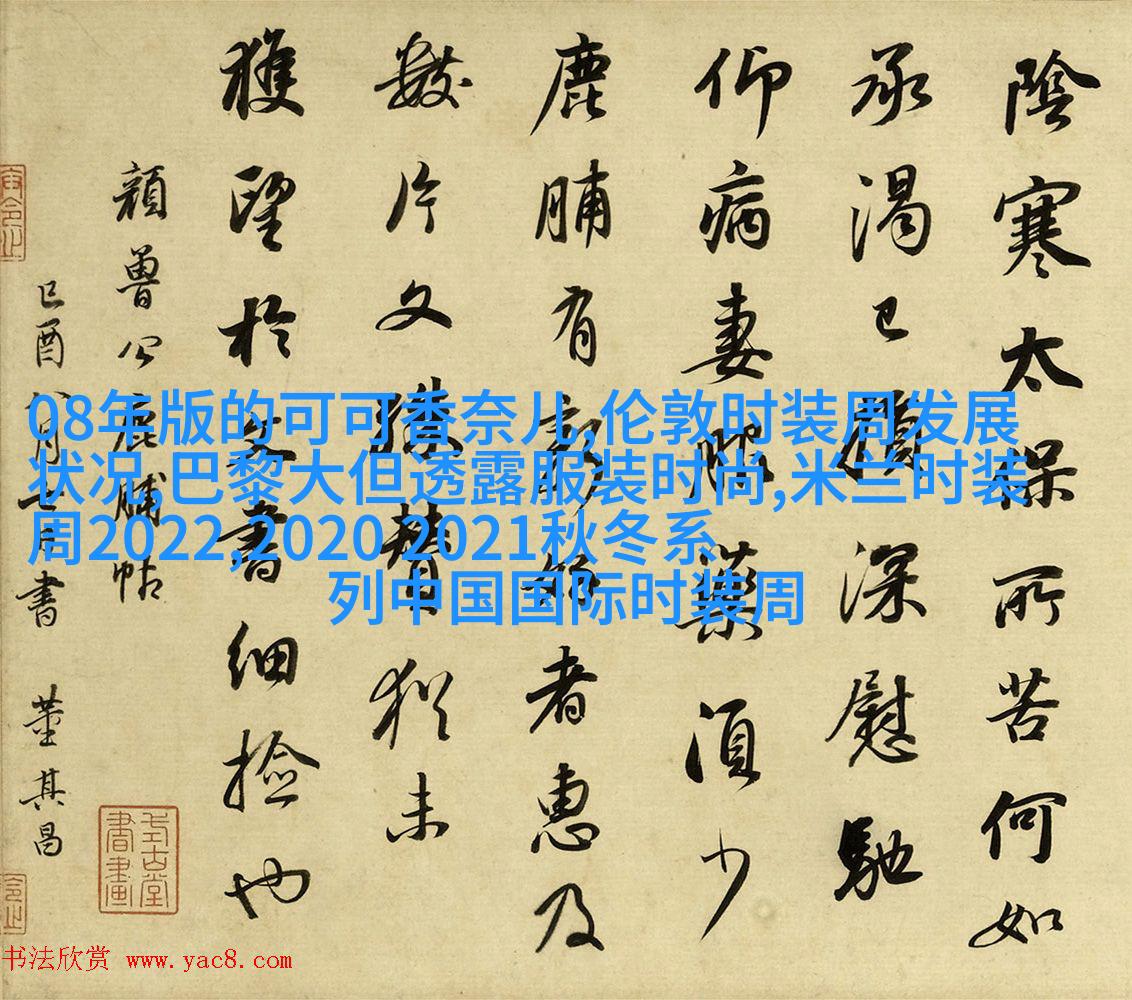 陰寒太保所苦何如
承渴已損深慰馳
仰病妻服藥須少
鹿脯有新好者惠及
數片文殊替猶未
獲望於文書細撿也
顏魯公鹿脯帖
己酉八月七日書 董其昌
式古堂書畫
08年版的可可香奈儿,伦敦时装周发展
状况,巴黎大但透露服装时尚,米兰时装
周2022,2020 2021秋冬系
列中国国际时装周
书法欣赏 www.yac8.com